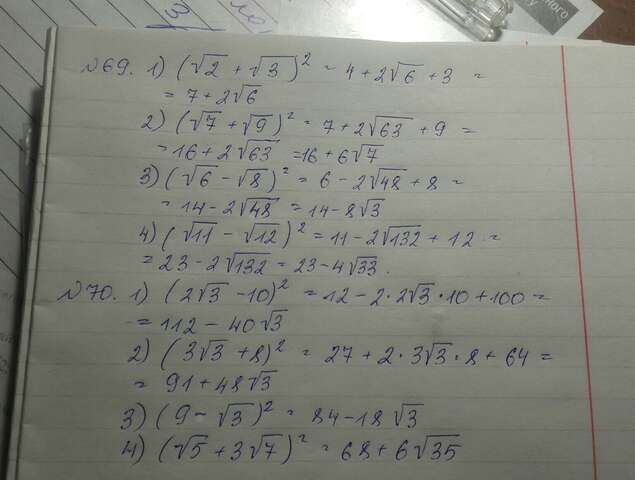 №69. 1) (√2 + √3)² = 4 + 2√6 + 3 =
= 7 + 2√6
2) (√7 + √9)² = 7 + 2√63 + 9 =
= 16 + 2√63 = 16 + 6√7
3) (√6 - √8)² = 6 - 2√48 + 8 =
= 14 - 2√48 = 14 - 8√3
4) (√11 - √12)² = 11 - 2√132 + 12 =
= 23 - 2√132 = 23 - 4√33.
№70. 1) (2√3 - 10)² = 12 - 2·2√3·10 + 100 =
= 112 - 40√3
2) (3√3 + 8)² = 27 + 2·3√3·8 + 64 =
= 91 + 48√3
3) (9 - √3)² = 84 - 18√3
4) (√5 + 3√7)² = 68 + 6√35